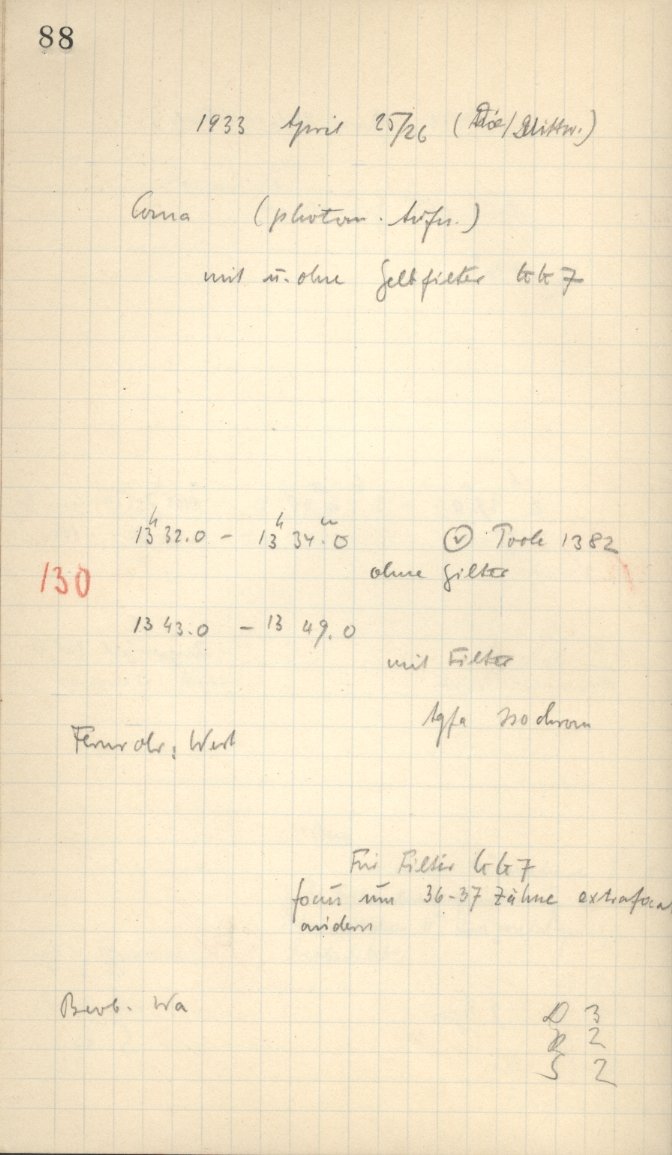 88
1933 April 25/26 (Die/Mittw.)
Coma (photom. Aufn.)
mit u. ohne Gelbfilter GG 7
13h 32.0 – 13h 34m.0 Poole 1382
ohne Filter
130
13 43.0 – 13 49.0
mit Filter
Agfa Isochrom
Fernrohr: West
Für Filter GG 7
focus um 36-37 Zähne extrafocal
ändern
Beob. Wa
D 3
R 2
S 2